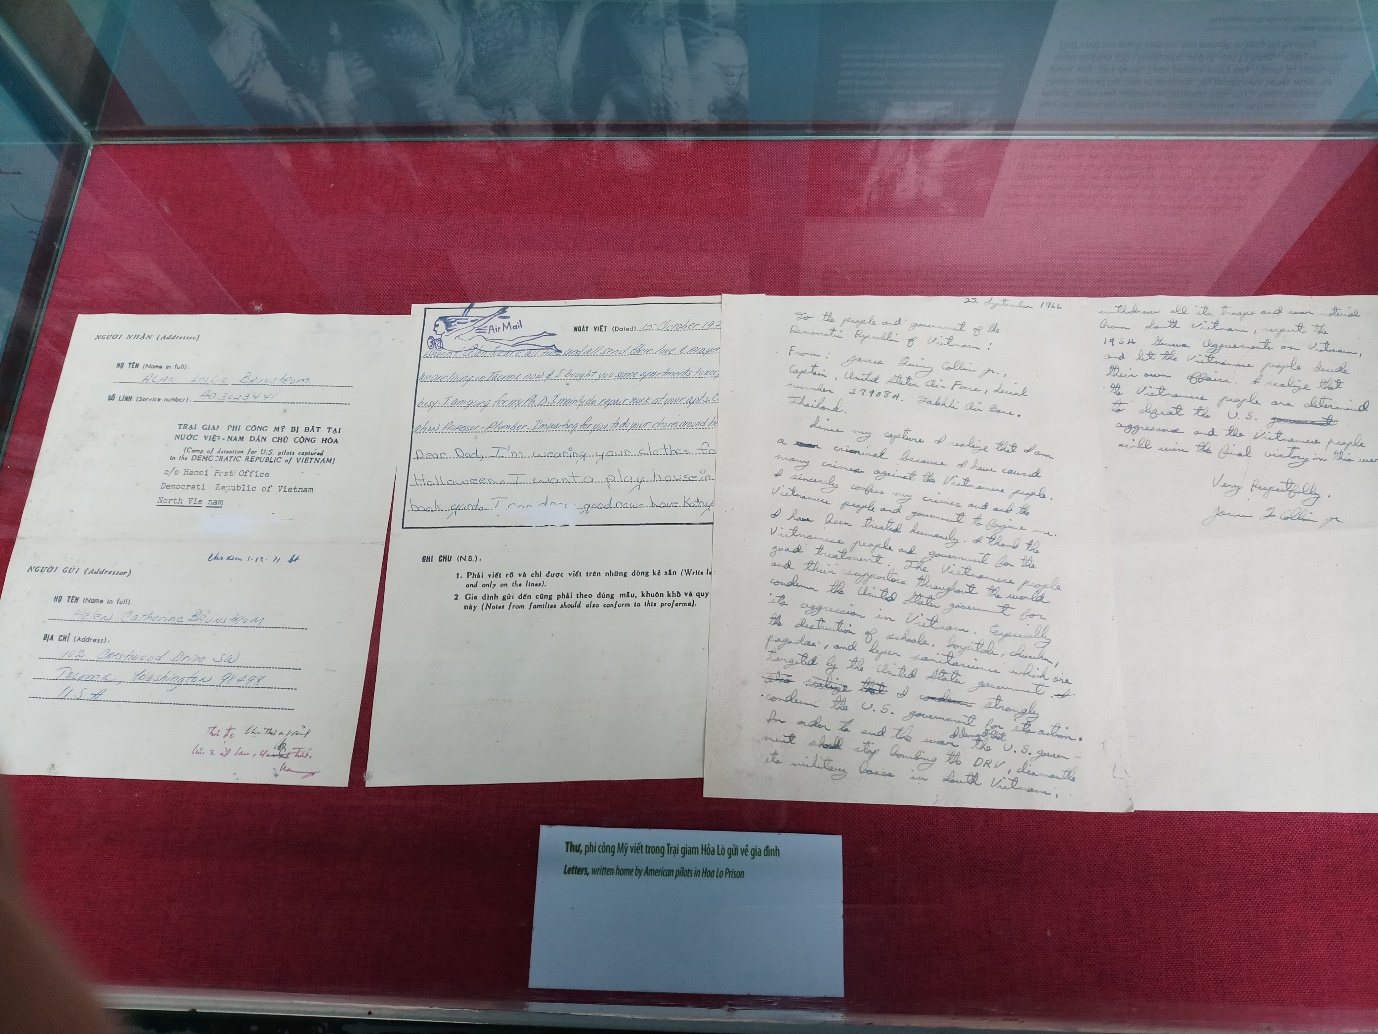 NGƯỜI NHẬN (Addressee)
HỌ TÊN (Name in full)
ALAN Leslie Brunstrom
SỐ LÍNH (Service number)
TRẠI GIAM PHI CÔNG MỸ BỊ BẮT TẠI
NƯỚC VIỆT-NAM DÂN CHỦ CỘNG HÒA
(Camp of detention for U.S. pilots captured
in the DEMOCRATIC REPUBLIC of VIETNAM)
c/o Hanoi Post Office
Democrati Republic of Vietnam
North Vie nam
1-12-71
NGƯỜI GỬI (Addressor)
HỌ TÊN (Name in full)
Karen Catherine Brunstrom
ĐỊA CHỈ (Address).
102 Crestwood Drive SW
Tacoma, Washington 98498
U.S.A
Air Mail
NGÀY VIẾT (Dated) 15 October 197
and all send their love & prayer
we are living in Tacoma now & I bought you some apartments to keep
busy. I am going for my Ph.D. I mainly do repair work at your apts.
Dear Dad, I'm wearing your clothes
Halloween. I want a play house in
back yard. good news have
GHI CHÚ (N.B.).
1. Phải viết rõ và chỉ được viết trên những dòng kẻ sẵn (Write le
and only on the lines).
2. Gia đình gửi đến cũng phải theo đúng mẫu, khuôn khổ và quy
này (Notes from families should also conform to this proforma).
22 September 1966
To the people and government of the
Democratic Republic of Vietnam:
From: James Quincy Collins Jr.,
Captain, United States Air Force, serial
number, 27908A. Takhli Air Base.
Thailand.
Since my capture I realize that I am
a criminal because I have caused
many crimes against the Vietnamese people.
I sincerely confess my crimes and ask the
Vietnamese people and government to forgive me.
I have been treated humanely. I thank the
Vietnamese people and government for the
good treatment. The Vietnamese people
and their supporters throughout the world
condemn the United States government for
its aggression in Vietnam. Especially
the destruction of schools, hospitals, churches,
pagodas, and leper sanitariums which are
targeted by the United States government. I
also realize that I condemn strongly
condemn the U.S. government for its action.
In order to end the war, the U.S. govern-
ment should stop bombing the DRV, dismantle
its military bases in South Vietnam,
withdraw all its troops and war
from South Vietnam, respect the
1954 Geneva Agreements on Vietnam,
and let the Vietnamese people decide
their own affairs. I realize that
the Vietnamese people are determined
to defeat the U.S.
aggressors and the Vietnamese people
will win the final victory in this war
Very Respectfully,
James Q Collins Jr.
Thư, phi công Mỹ viết trong Trại giam Hỏa Lò gửi về gia đình
Letters, written home by American pilots in Hoa Lo Prison